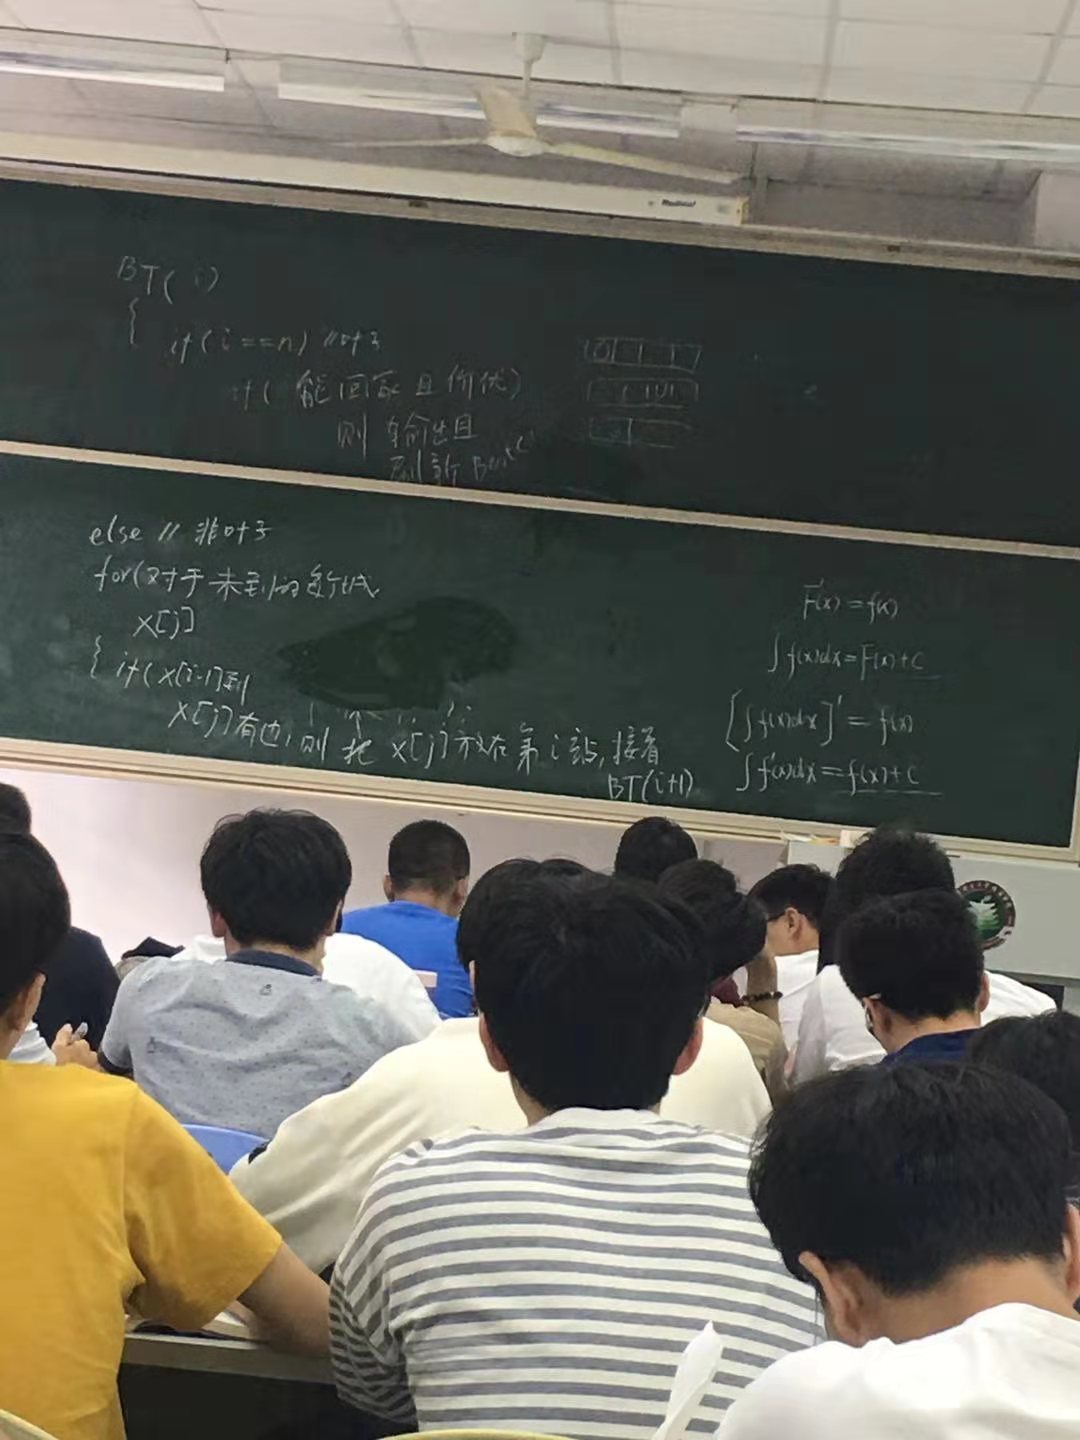 BT(i)
{
if(i==n) //叶子
if(能回家且价优)
则输出且
刷新Best
else // 非叶子
for(对于未到的每个城
x[j]
{ if(x[i-1]到
x[j]有边,则把x[j]放在第i站,接着
BT(i+1)
F'(x)=f(x)
∫f(x)dx=F(x)+C
[∫f(x)dx]'=f(x)
∫f'(x)dx=f(x)+C